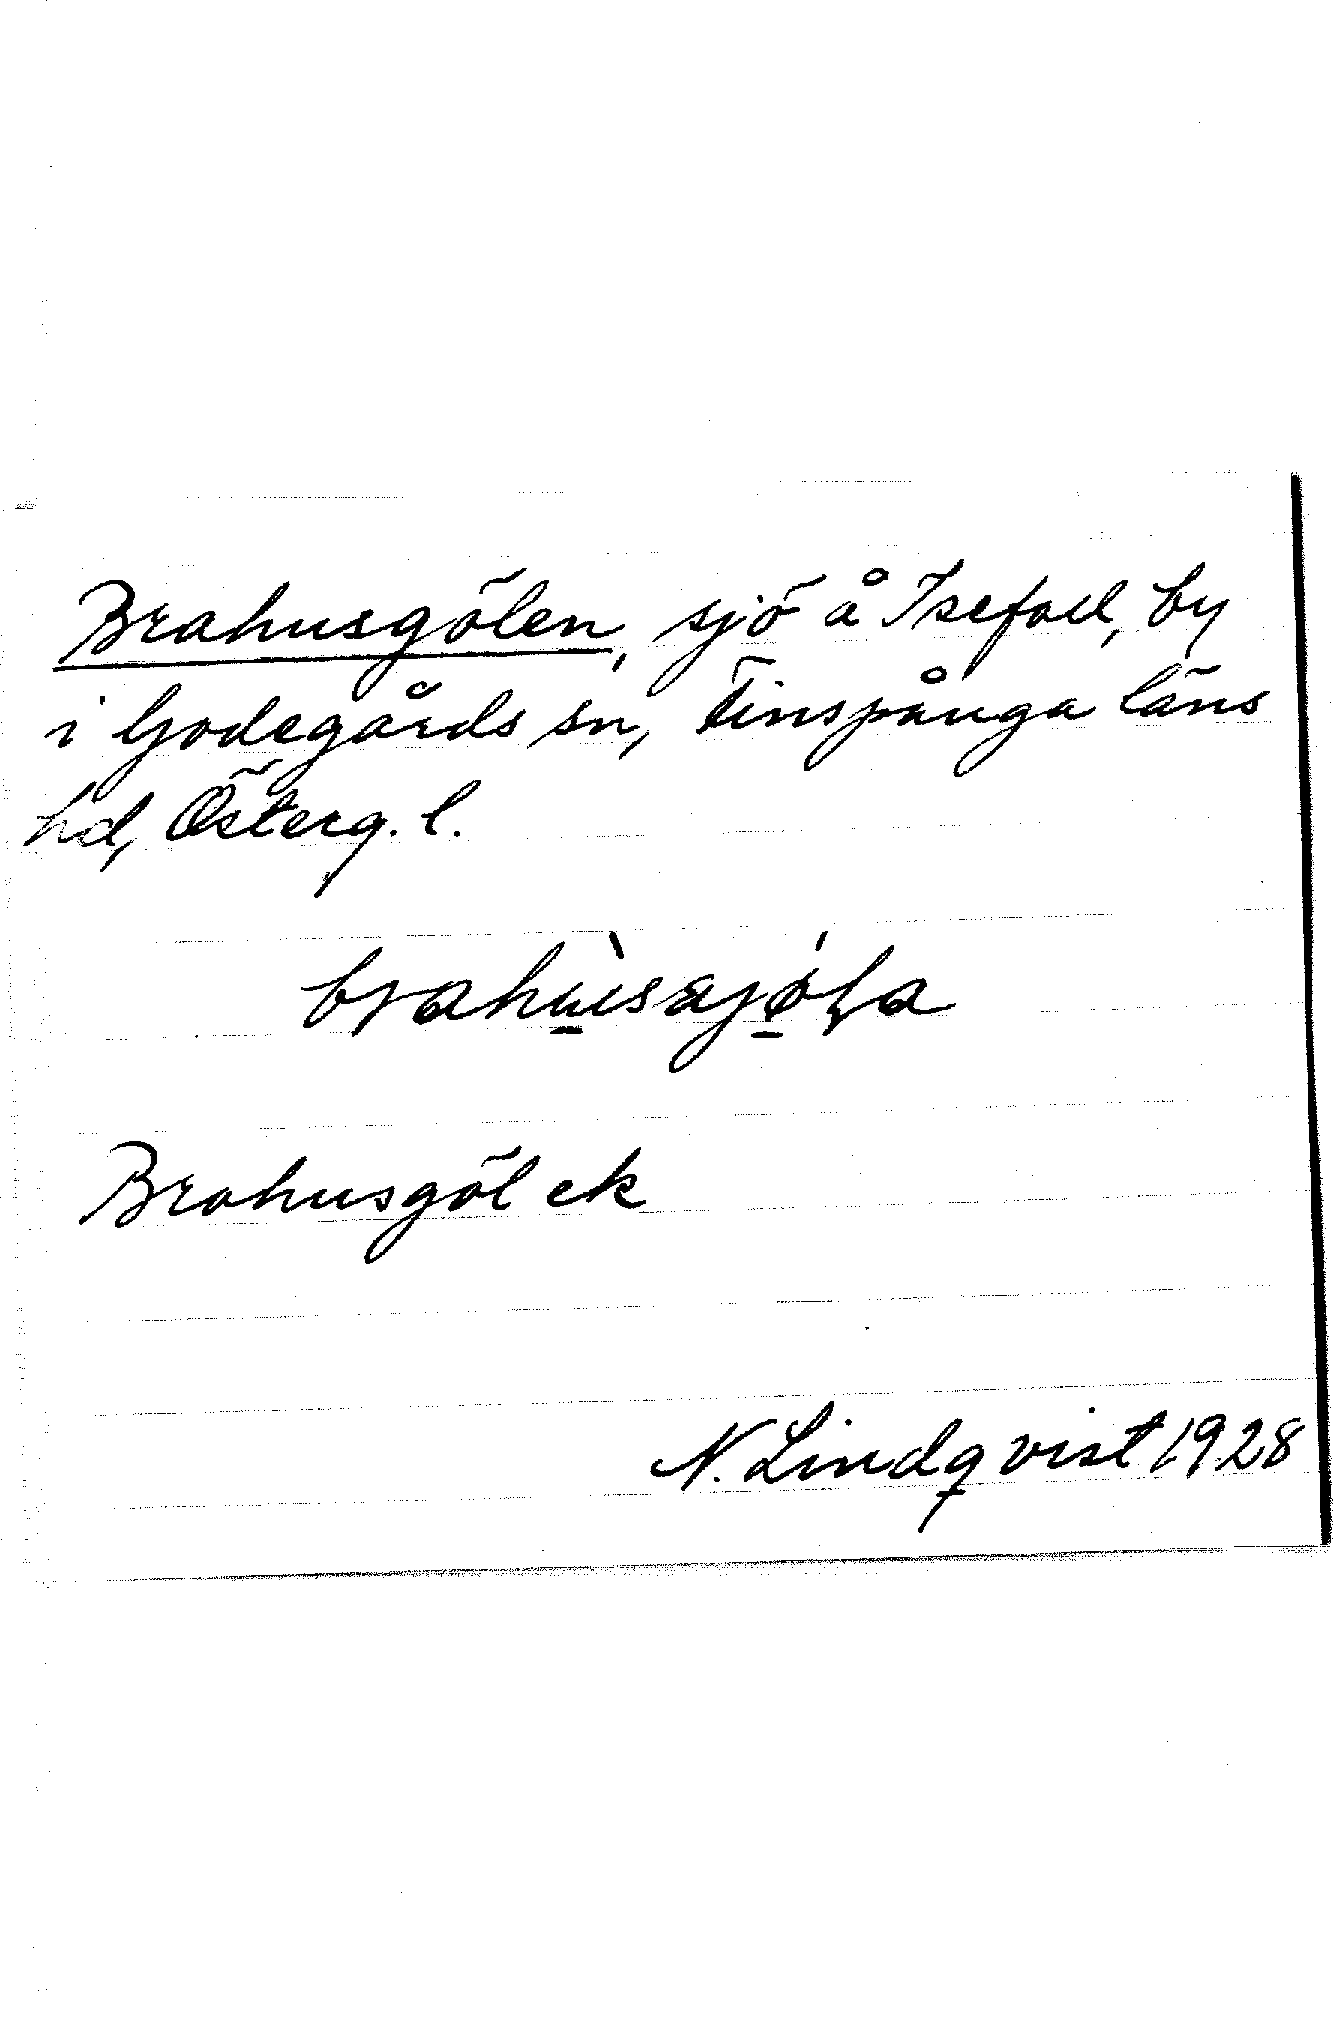 Brahusgölen, sjö å Isefall, by
i Godegårds sn, Finspånga läns
hd, Österg. l.
Brahusgöl ek
N. Lindqvist 1928